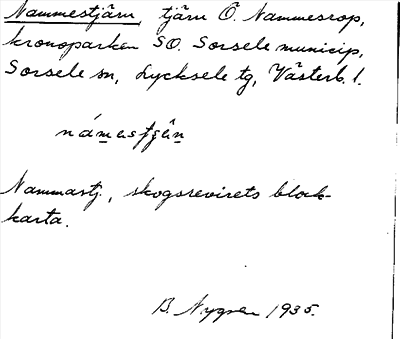 Nammestjärn, tjärn Ö. Nammesrop,
kronoparken SO. Sorsele municip,
Sorsele sn, Lycksele tg, Västerb. l.
Nammastj., skogsrevirets block-
karta.
B. Nygren 1935.